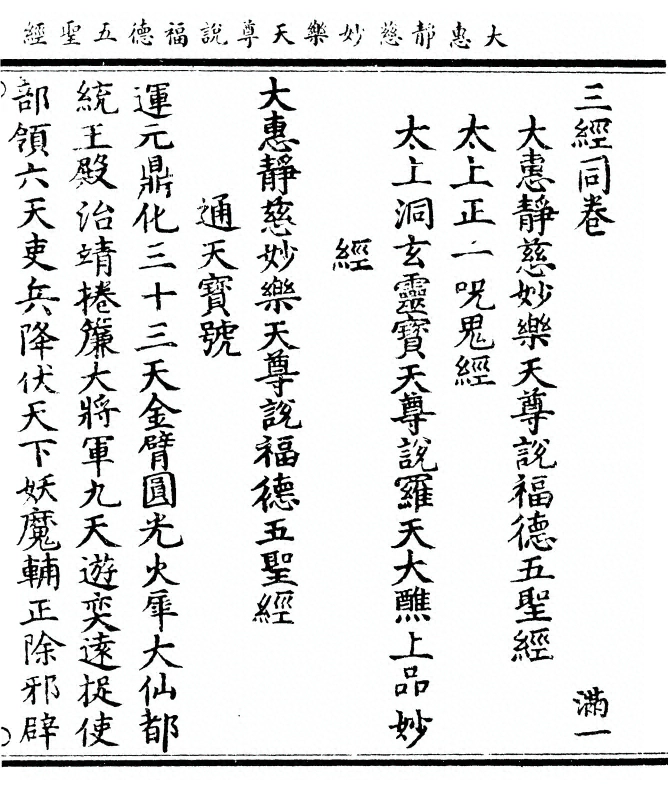 大惠靜慈妙樂天尊說福德五聖經
三經同卷 滿一
大惠靜慈妙樂天尊說福德五聖經
太上正一呪鬼經
太上洞玄靈寶天尊說羅天大醮上品妙
經
大惠靜慈妙樂天尊說福德五聖經
通天寶號
運元鼎化三十三天金臂圓光火犀大仙都
統王殿治靖捲簾大將軍九天遊奕遠捉使
部領六天吏兵降伏天下妖魔輔正除邪辟